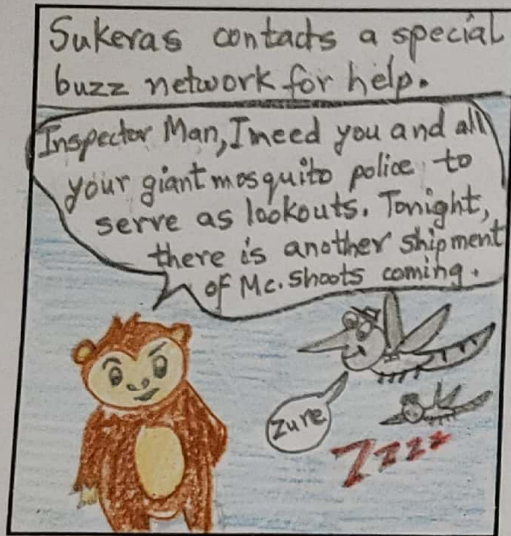 Sukeras contacts a special
buzz network for help.
Inspector Man, I need you and all
your giant mosquito police to
serve as lookouts. Tonight,
there is another shipment
of Mc. Shoots coming.
Zure
Zzzz